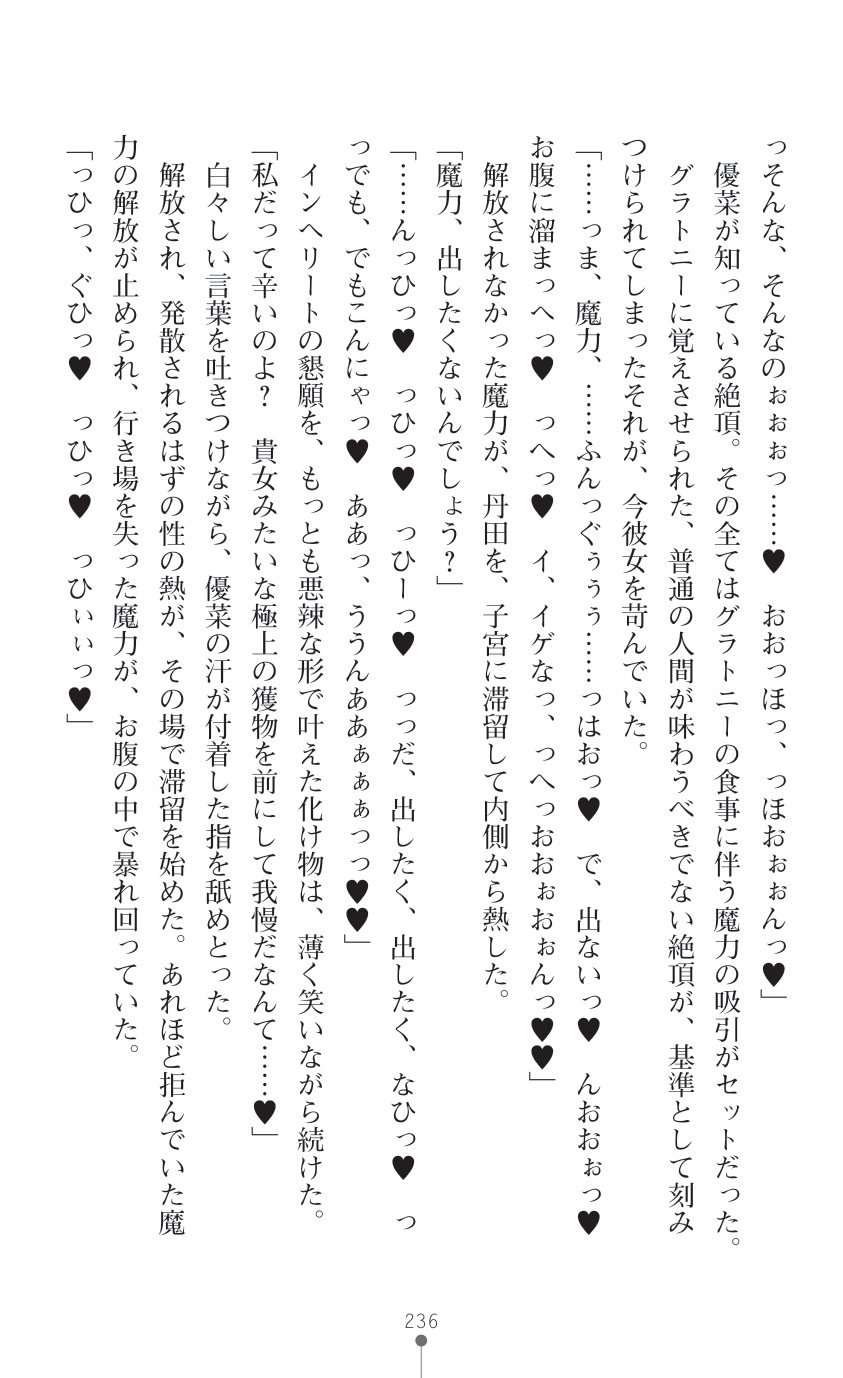 っそんな、そんなのぉぉぉっ……♥　おおっほっ、っほおぉぉんっ♥」
　優菜が知っている絶頂。その全てはグラトニーの食事に伴う魔力の吸引がセットだった。
　グラトニーに覚えさせられた、普通の人間が味わうべきでない絶頂が、基準として刻み
つけられてしまったそれが、今彼女を苛んでいた。
「……っま、魔力、……ふんっぐぅぅぅ……っはおっ♥　で、出ないっ♥　んおおぉっ♥
お腹に溜まっへっ♥　っへっ♥　イ、イゲなっ、っへっおおぉおぉんっ♥♥」
　解放されなかった魔力が、丹田を、子宮に滞留して内側から熱した。
「魔力、出したくないんでしょう？」
「……んっひっ♥　っひっ♥　っひーっ♥　っっだ、出したく、出したく、なひっ♥　っ
っでも、でもこんにゃっ♥　ああっ、ううんああぁぁぁっっ♥♥」
　インヘリートの懇願を、もっとも悪辣な形で叶えた化け物は、薄く笑いながら続けた。
「私だって辛いのよ？　貴女みたいな極上の獲物を前にして我慢だなんて……♥」
　白々しい言葉を吐きつけながら、優菜の汗が付着した指を舐めとった。
　解放され、発散されるはずの性の熱が、その場で滞留を始めた。あれほど拒んでいた魔
力の解放が止められ、行き場を失った魔力が、お腹の中で暴れ回っていた。
「っひっ、ぐひっ♥　っひっ♥　っひぃぃっ♥」
236